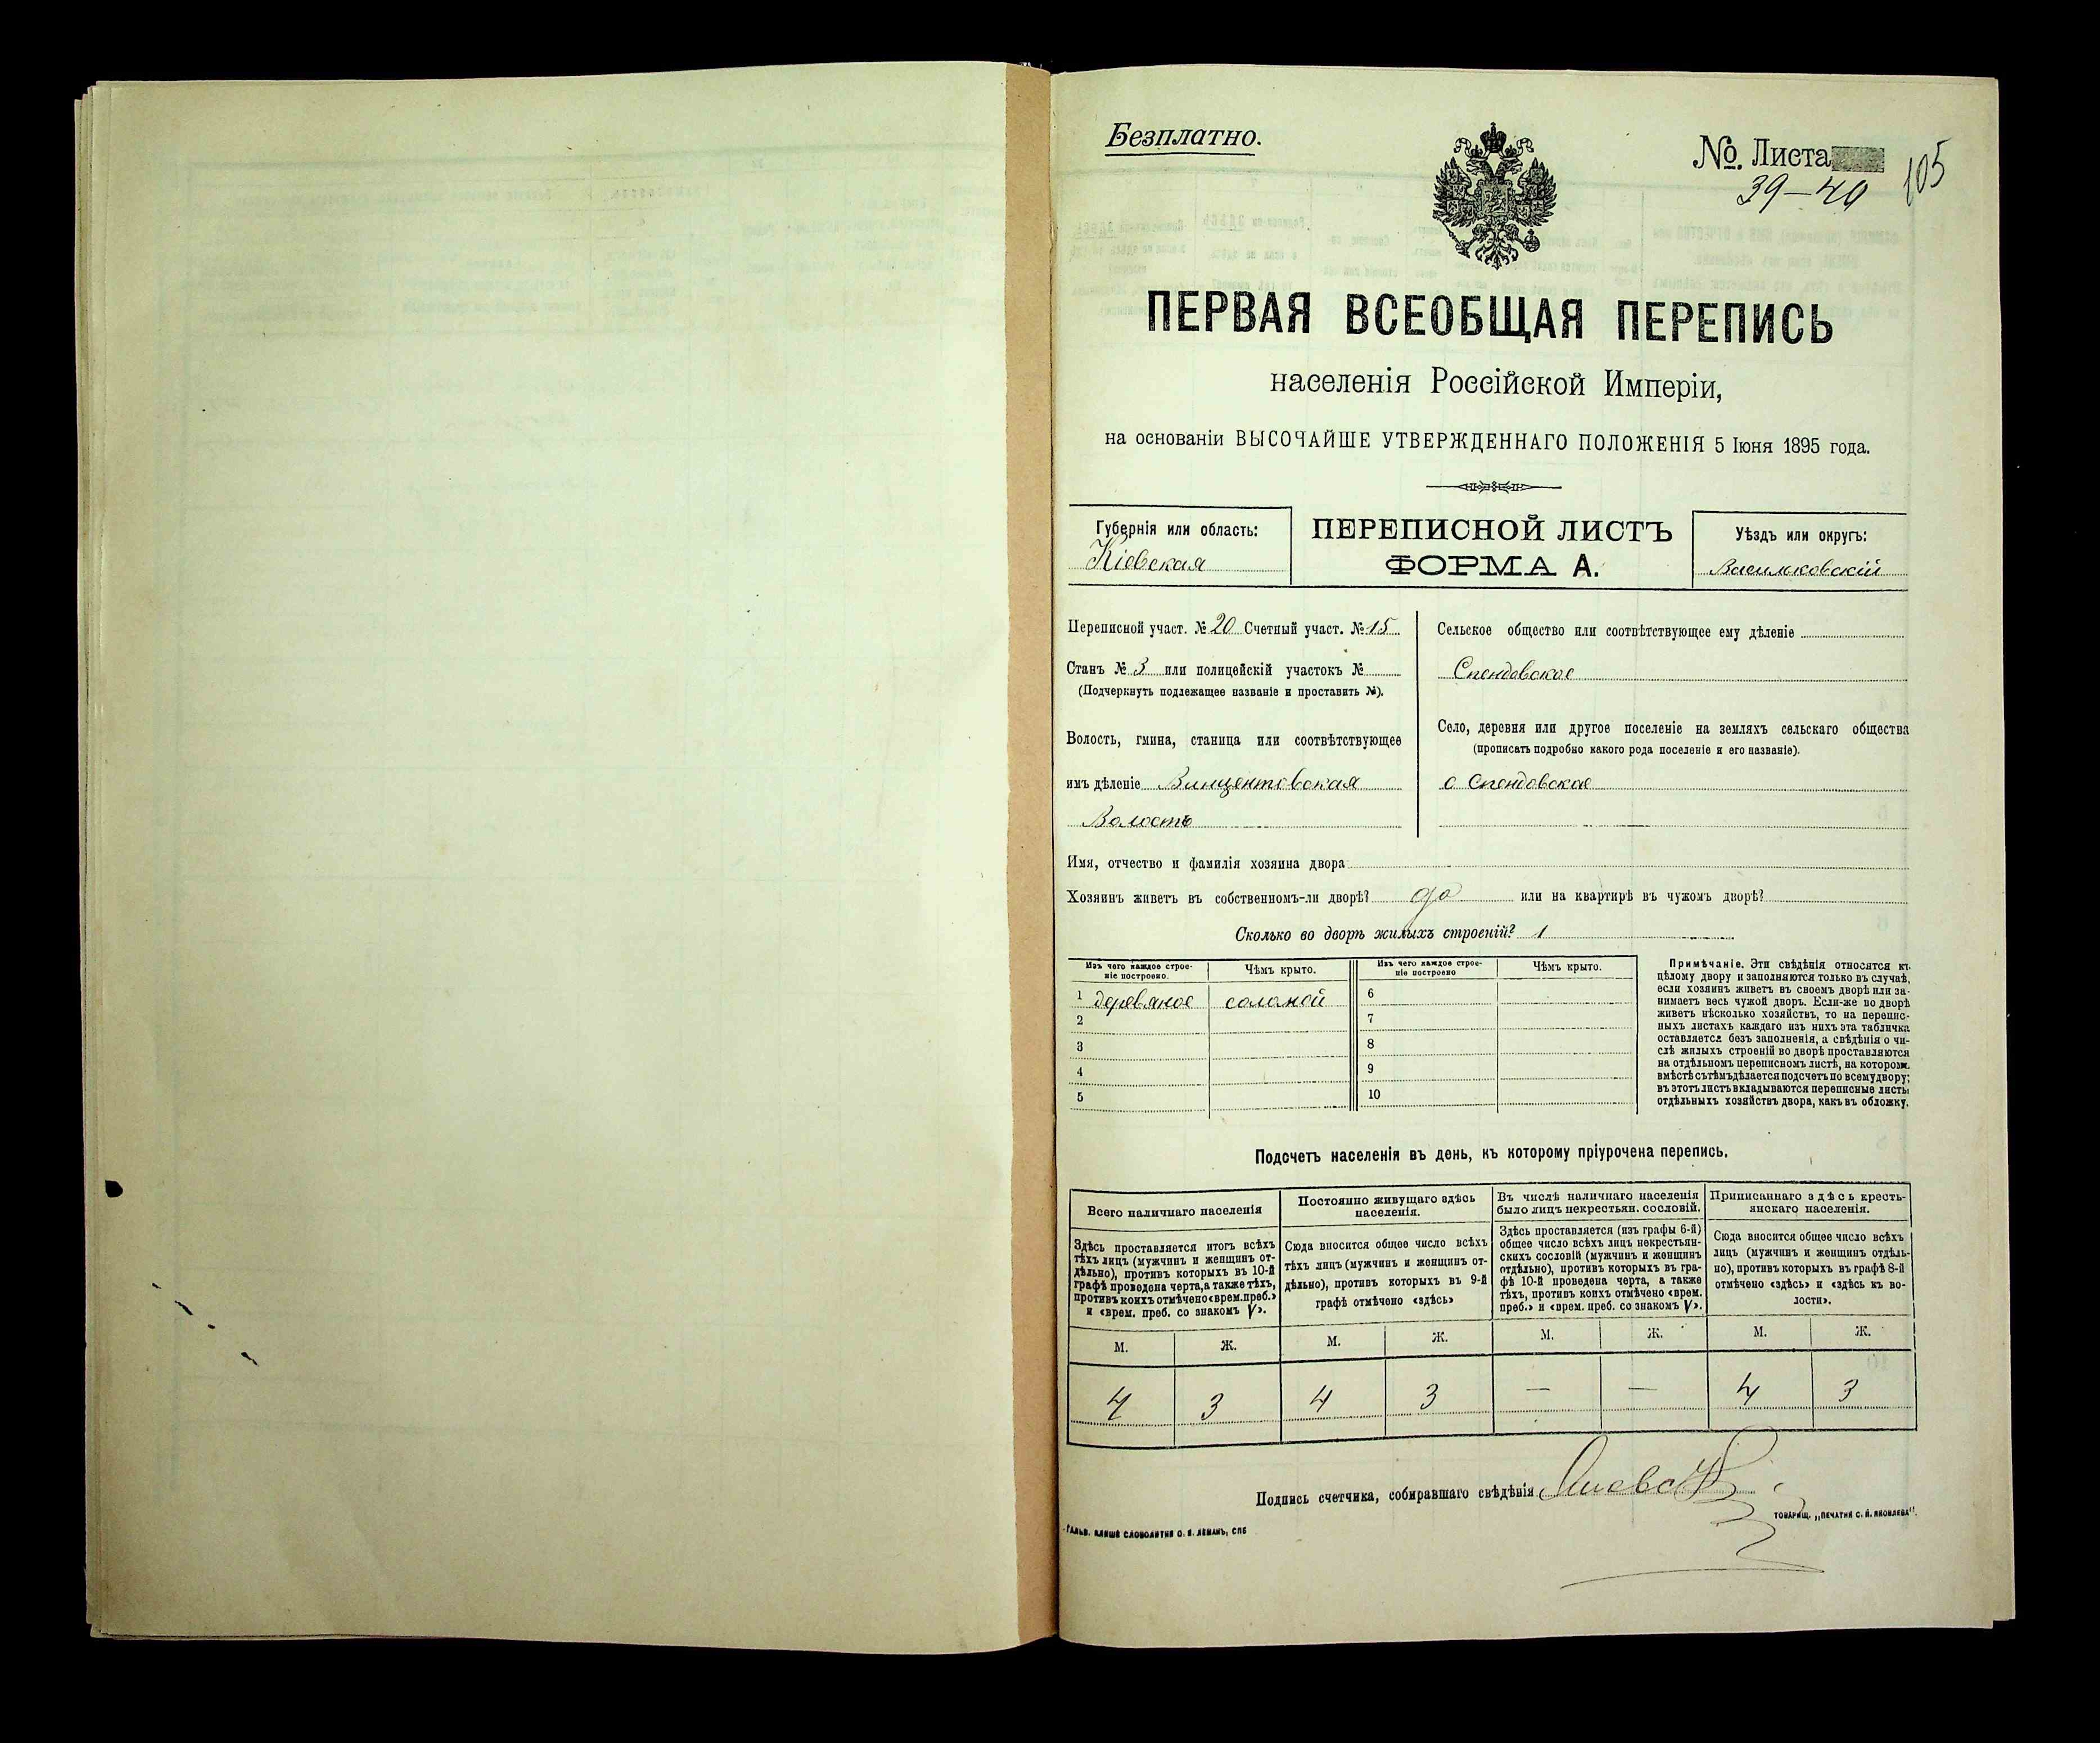 Безплатно.
№. Листа
39—40
105
ПЕРВАЯ ВСЕОБЩАЯ ПЕРЕПИСЬ
населенія Россійской Имперіи,
на основаніи ВЫСОЧАЙШЕ УТВЕРЖДЕННАГО ПОЛОЖЕНІЯ 5 Іюня 1895 года.
Губернія или область:
Кіевская
ПЕРЕПИСНОЙ ЛИСТЪ
ФОРМА А.
Уѣздъ или округъ:
Васильковскій
Переписной участ. № 20 Счетный участ. № 15
Станъ № 3 или полицейскій участокъ №
(Подчеркнуть подлежащее названіе и проставить №).
Волость, гмина, станица или соотвѣтствующее
имъ дѣленіе Винцентовская
Волость
Сельское общество или соотвѣтствующее ему дѣленіе
Спендовское
Село, деревня или другое поселеніе на земляхъ сельскаго общества
(прописать подробно какого рода поселеніе и его названіе).
с Спендовское
Имя, отчество и фамилія хозяина двора
Хозяинъ живетъ въ собственномъ-ли дворѣ? да или на квартирѣ въ чужомъ дворѣ?
Сколько во дворѣ жилыхъ строеній? 1
Изъ чего каждое строе-
ніе построено.
Чѣмъ крыто.
Изъ чего каждое строе-
ніе построено
Чѣмъ крыто.
1 деревяное соломой 6
2 7
3 8
4 9
5 10
Примѣчаніе. Эти свѣдѣнія относятся къ
цѣлому двору и заполняются только въ случаѣ,
если хозяинъ живетъ въ своемъ дворѣ или за-
нимаетъ весь чужой дворъ. Если-же во дворѣ
живетъ нѣсколько хозяйствъ, то на перепис-
ныхъ листахъ каждаго изъ нихъ эта табличка
оставляется безъ заполненія, а свѣдѣнія о чи-
слѣ жилыхъ строеній во дворѣ проставляются
на отдѣльномъ переписномъ листѣ, на которомъ
вмѣстѣ съ тѣмъ дѣлается подсчетъ по всему двору;
въ этотъ листъ вкладываются переписные листы
отдѣльныхъ хозяйствъ двора, какъ въ обложку.
Подсчетъ населенія въ день, къ которому пріурочена перепись.
Всего наличнаго населенія
Здѣсь проставляется итогъ всѣхъ
тѣхъ лицъ (мужчинъ и женщинъ от-
дѣльно), противъ которыхъ въ 10-й
графѣ проведена черта, а также тѣхъ,
противъ коихъ отмѣчено «врем. преб.»
и «врем. преб. со знакомъ V».
Постоянно живущаго здѣсь
населенія.
Сюда вносится общее число всѣхъ
тѣхъ лицъ (мужчинъ и женщинъ от-
дѣльно), противъ которыхъ въ 9-й
графѣ отмѣчено «здѣсь»
Въ числѣ наличнаго населенія
было лицъ некрестьян. сословій.
Здѣсь проставляется (изъ графы 6-й)
общее число всѣхъ лицъ некрестьян-
скихъ сословій (мужчинъ и женщинъ
отдѣльно), противъ которыхъ въ гра-
фѣ 10-й проведена черта, а также
тѣхъ, противъ коихъ отмѣчено «врем.
преб.» и «врем. преб. со знакомъ V».
Приписаннаго здѣсь кресть-
янскаго населенія.
Сюда вносится общее число всѣхъ
лицъ (мужчинъ и женщинъ отдѣль-
но), противъ которыхъ въ графѣ 8-й
отмѣчено «здѣсь» и «здѣсь къ во-
лости».
М. Ж. М. Ж. М. Ж. М. Ж.
4 3 4 3 — — 4 3
Подпись счетчика, собиравшаго свѣдѣнія
ГАЛЬВ. КЛИШЕ СЛОВОЛИТНИ О. И. ЛЕМАНЪ, СПБ
ТОВАРИЩ. „ПЕЧАТНЯ С. П. ЯКОВЛЕВА“.